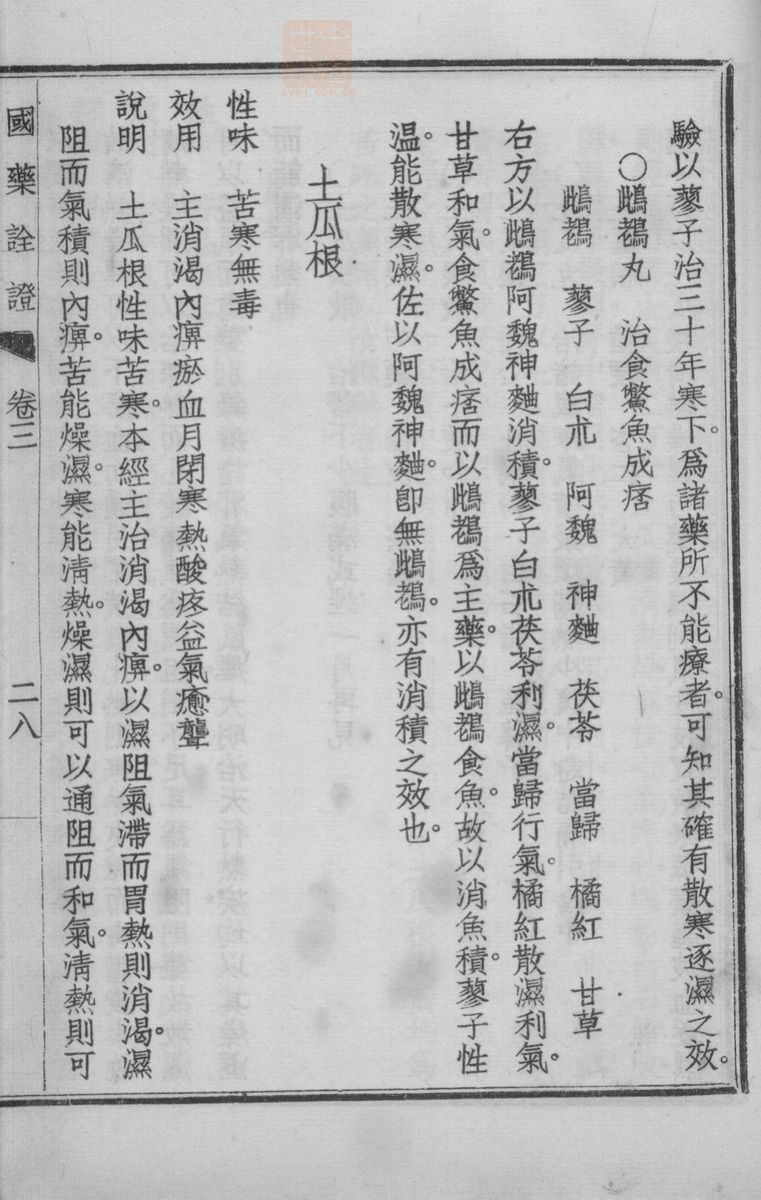 驗以蓼子治三十年寒下。爲諸藥所不能療者。可知其確有散寒逐濕之效。
○鴟鵂丸　治食鱉魚成痞
鴟鵂　蓼子　白朮　阿魏　神麯　茯苓　當歸　橘紅　甘草
右方以鴟鵂阿魏神麯消積。蓼子白朮茯苓利濕。當歸行氣。橘紅散濕利氣。
甘草和氣。食鱉魚成痞而以鴟鵂爲主藥。以鴟鵂食魚。故以消魚積。蓼子性
溫。能散寒濕。佐以阿魏神麯。卽無鴟鵂。亦有消積之效也。
土瓜根
性味　苦寒無毒
效用　主消渴內痹瘀血月閉寒熱酸疼益氣癒聾
說明　土瓜根性味苦寒。本經主治消渴內痹。以濕阻氣滯而胃熱則消渴。濕
阻而氣積則內痹。苦能燥濕。寒能淸熱。燥濕則可以通阻而和氣。淸熱則可
國藥詮證　卷三　二八